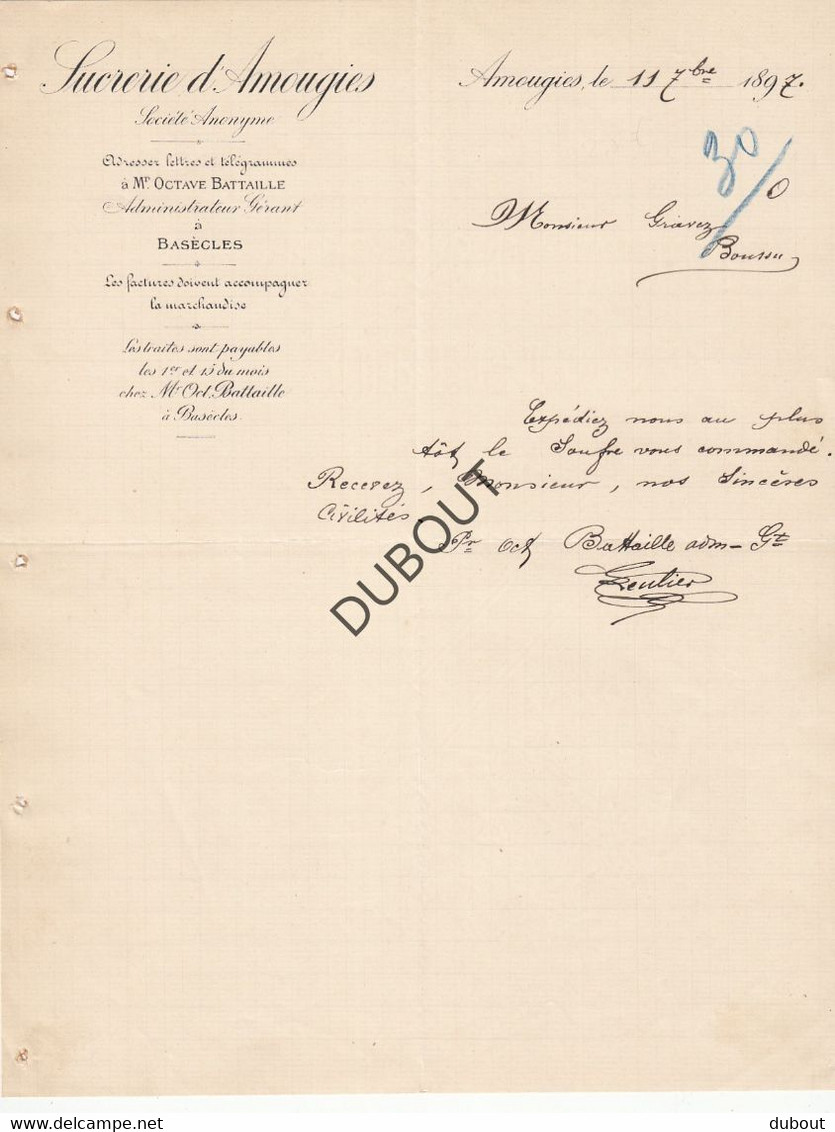 Sucrerie d'Amougies
Société Anonyme
Adresser lettres et télégrammes
à Mr. OCTAVE BATTAILLE
Administrateur Gérant
à
BASÈCLES
Les factures doivent accompagner
la marchandise
Les traites sont payables
les 1er et 15 du mois
chez Mr Oct. Battaille
à Basècles.
Amougies, le 11 7bre 1897.
30/0
Monsieur Gravez
Boussu
Expédiez nous au plus
tôt le Soufre vous commandé.
Recevez, Monsieur, nos Sincères
Civilités.
Pr Oct Battaille adm-Gt
DUBOUT
delcampe.net
dubout